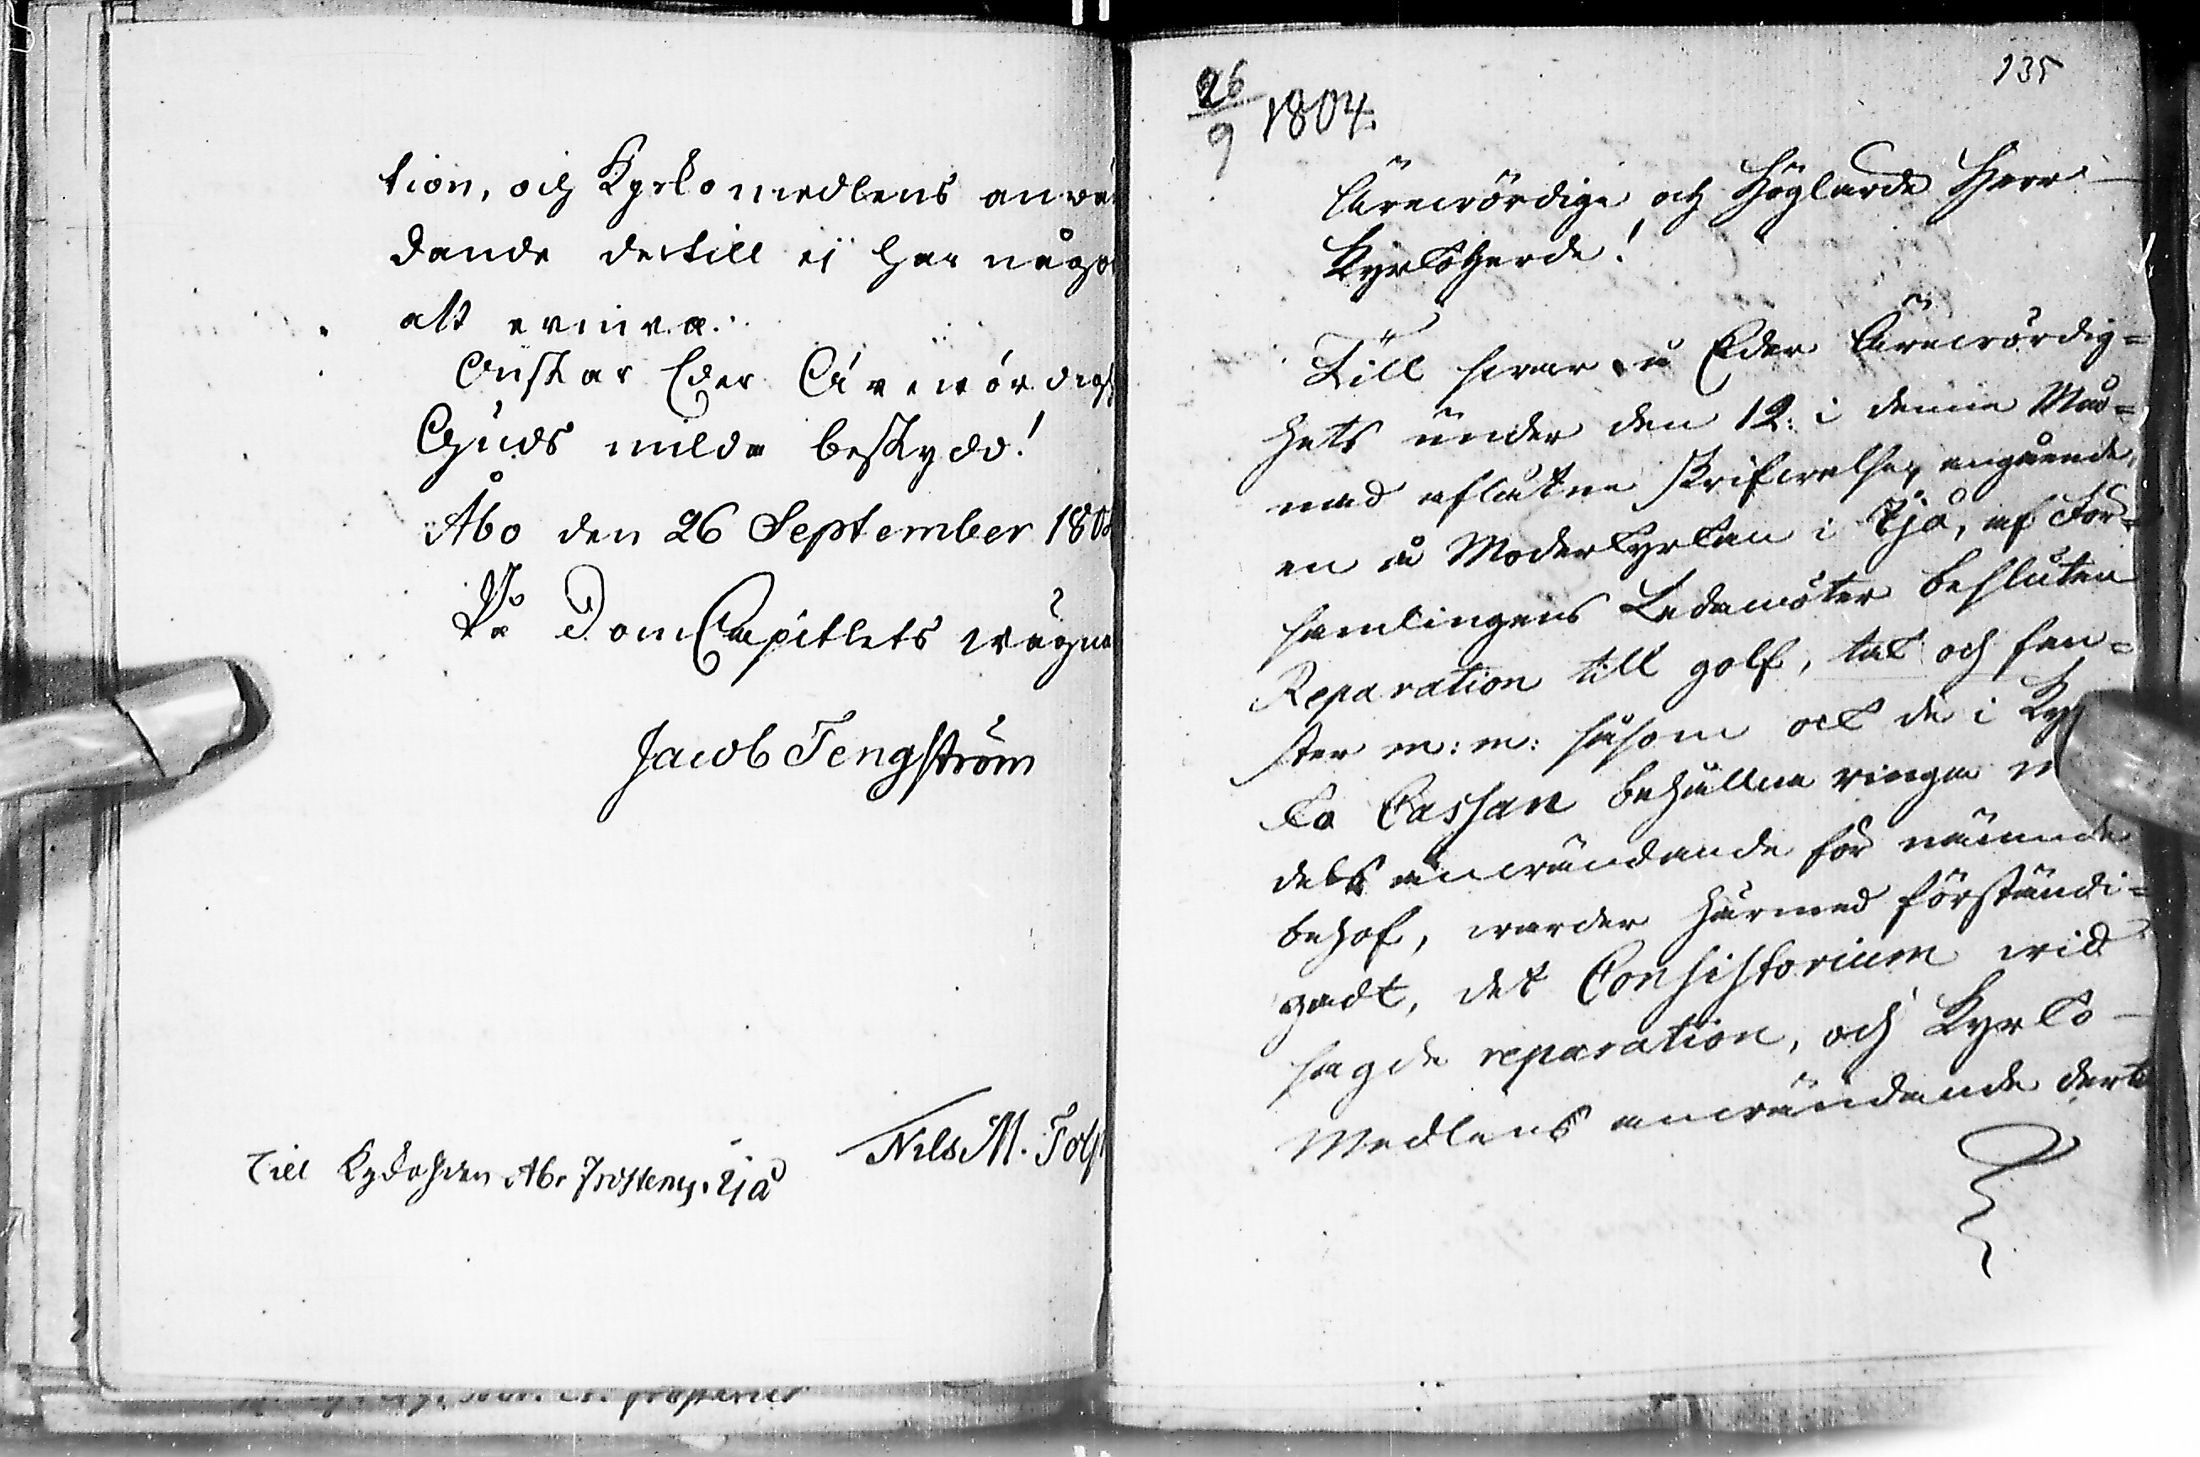 tion, och Kyrkomedlens anwän
dande dertill ej har något
att erinra.
Önskar Eder Ärewördigh
Guds milda beskydd!
Åbo den 26 September 180
På DomCapitlets wägna
Jacob Tengström
Nils M. Tols
Till Kyrkoherden Abr. Prosteny. Ijå
26/9 1804.
135
Ärewördige och Höglärde Herr
Kyrkoherde!
Till swar å Eder Ärewördig=
hets under den 12. i denne Må=
nad aflåtne skrifwelse, angående,
en å Moderkyrkan i Ijå, af För=
samlingens Ledamöter besluten
Reparation till golf, tak och fen=
ster m:m: såsom ock de i Kyr
ko Cassan behållne ringa m
dels anwändande för nämnde
behof, warder härmed förständi=
gadt, det Consistorium wid
sagde reparation, och Kyrko-
Medlens anwändande dert